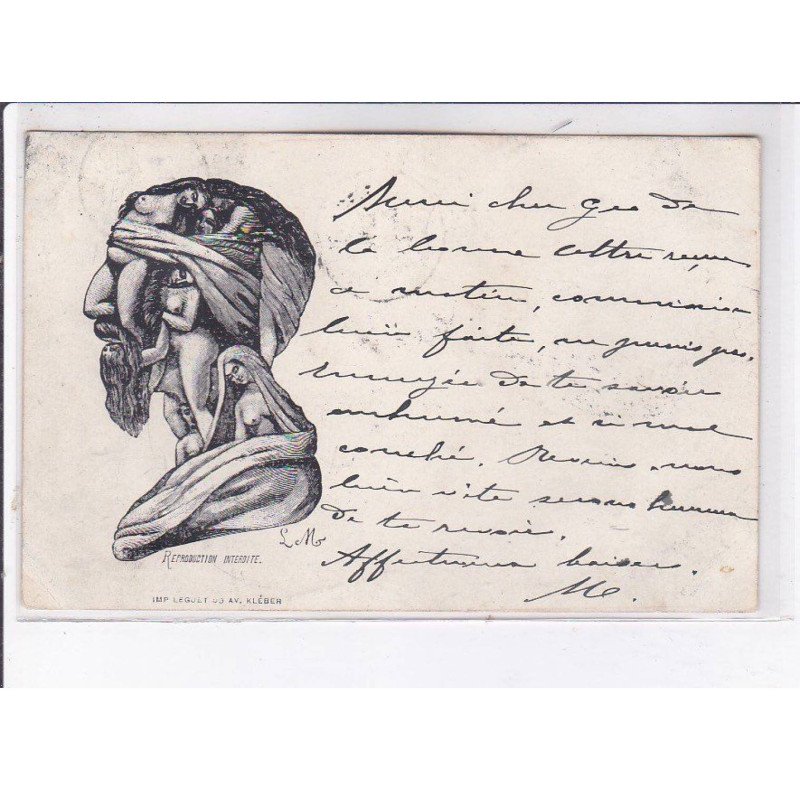 Merci cher Geo de
la bonne lettre reçue
ce matin, commission
bien faite, ne
de te savoir
enrhumé et si mal
couché. Reviens nous
bien vite serons heureux
de te revoir.
Affectueux baiser.
M.
L M
REPRODUCTION INTERDITE.
IMP LEGUET 83 AV. KLÉBER